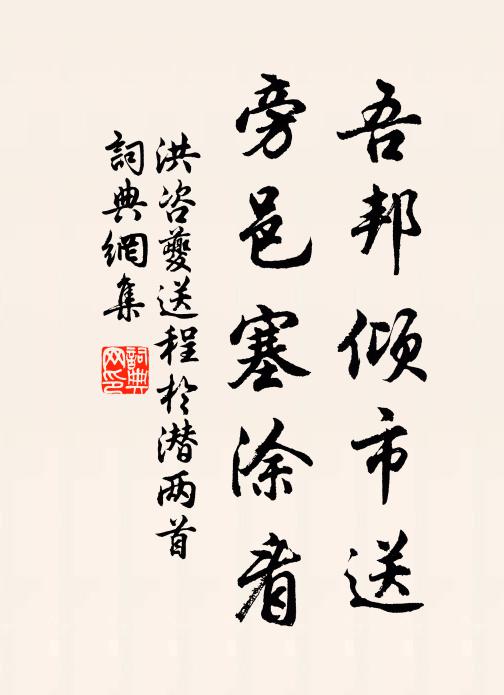 吾邦倾市送
旁邑塞涂看
洪咨夔送程於潜两首
詞典網集
詞典网印